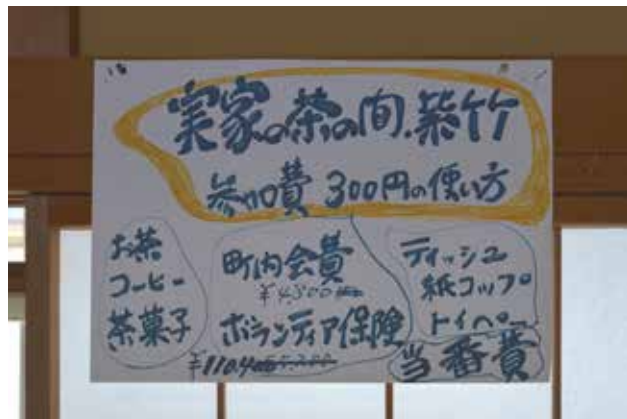 実家の茶の間.紫竹
参加費 300円の使い方
お茶
コーヒー
茶菓子
町内会費
¥4,800
ボランティア保険
ティッシュ
紙コップ
トイペー
当番費